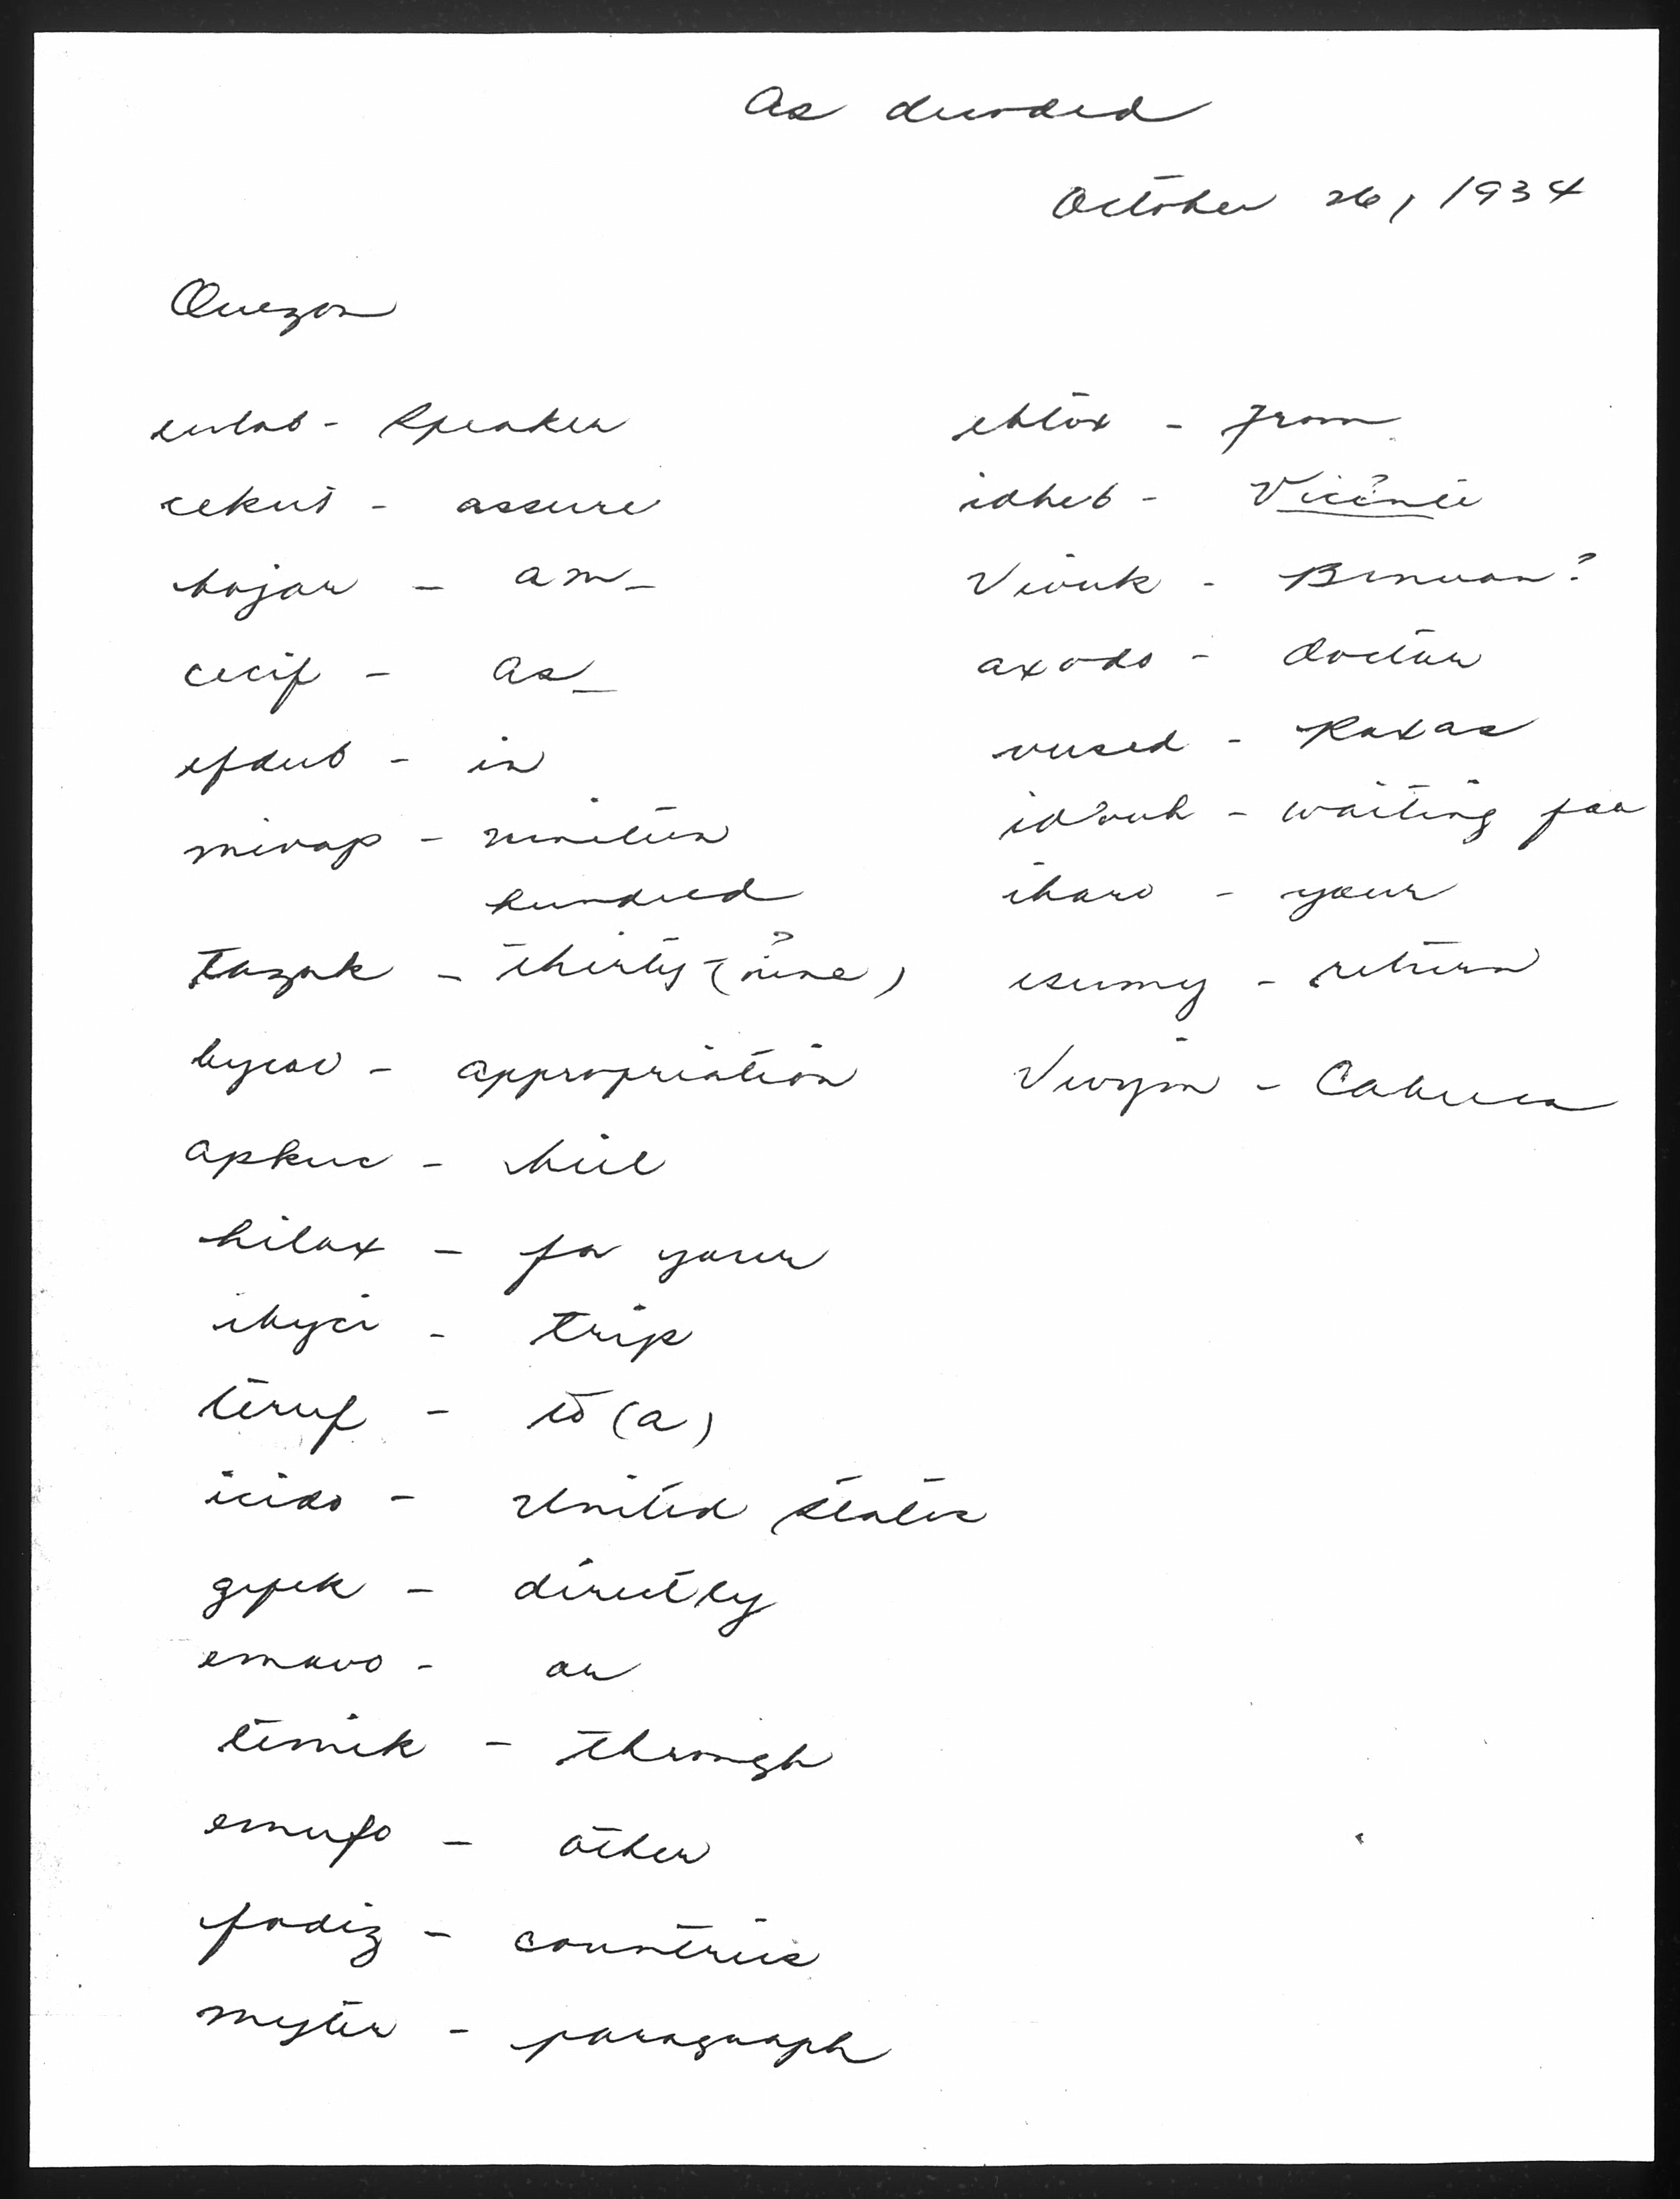 As decoded
October 26, 1934
Quezon
- Speaker
cekut - assure
hojar - am -
cecif - as -
efdub - in
mivap - nineteen
hundred
tazuk - thirty - (nine?)
- appropriation
apkuc - bill
hilax - for your
ibyci - trip
teruf - to (a)
icido - United States
gypek - directly
emavo - or
timik - through
emufo - other
fodiz - countries
myter - paragraph
ehtox - from
idheb - Vicente
Vivuk - ?
axodo - doctor
vused - Roxas
- waiting for
iharo - your
esumy - return
Vwyin -